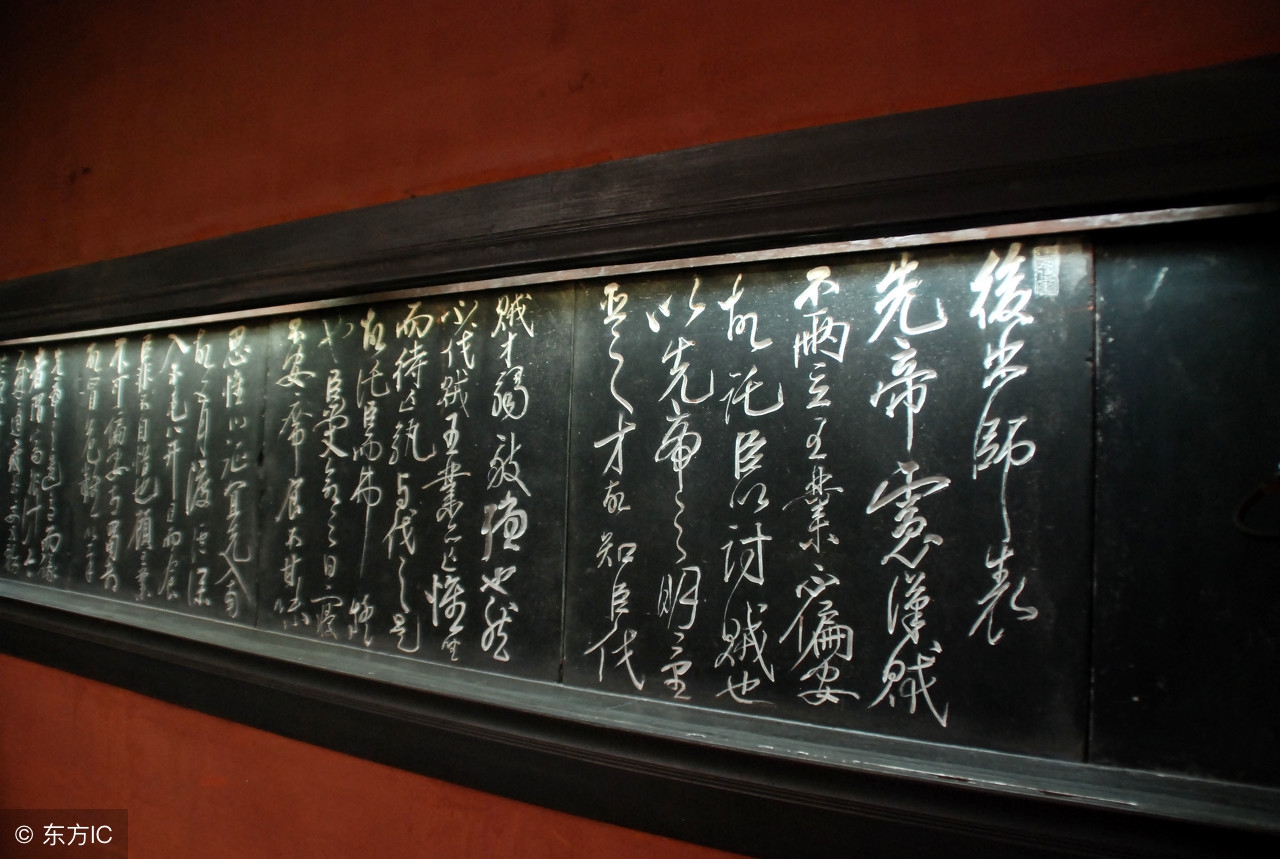 後出師表
先帝慮漢賊
不兩立王業不偏安
故託臣以討賊也
以先帝之明量
臣之才故知臣伐
賊才弱敵強也然
不伐賊王業亦亡惟坐
而待亡孰與伐之是
故託臣而弗疑
也臣受命之日寢
不安席食不甘味
思惟北征宜先入南
故五月渡瀘深
入不毛并日而食
臣非不自惜也顧王業
不可偏安於蜀都
故冒危難以奉
先帝之遺意而議
者謂為非計今
© 东方IC